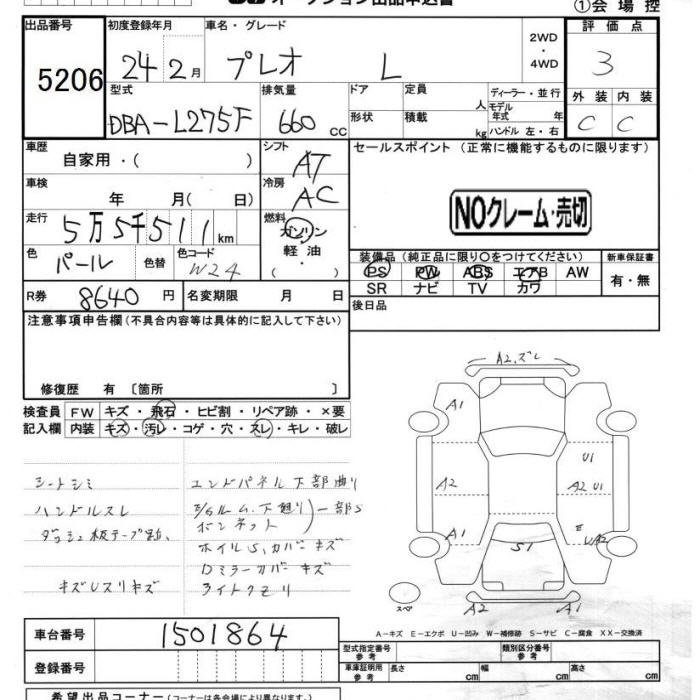 オークション出品申込書
①会場控
出品番号 初度登録年月 車名・グレード 2WD・4WD 評価点
5206 24 2月 プレオ L 3
型式 排気量 ドア 定員 人 ディーラー・並行 外装 内装
DBA-L275F 660cc 形状 積載 kg モデル年式 年 ハンドル 左・右 C C
車歴 自家用・( ) シフト AT セールスポイント (正常に機能するものに限ります)
車検 年 月( 日) 冷房 AC
NOクレーム・売切
走行 5万5千511km 燃料 ガソリン 軽油・( )
色 パール 色替 色コード W24
装備品 (純正品に限り○をつけてください) 新車保証書
PS PW ABS エアB AW 有・無
SR ナビ TV カワ
R券 8640円 名変期限 月 日 後日品
注意事項申告欄 (不具合内容等は具体的に記入して下さい)
修復歴 有 〔箇所 〕
検査員 FW キズ・飛石・ヒビ割・リペア跡・×要
記入欄 内装 キズ・汚レ・コゲ・穴・スレ・キレ・破レ
シートシミ エンドパネル下部曲り
ハンドルスレ
ダッシュ板テープ跡、 ボンネット 一部S
ホイルS、カバーキズ
Dミラーカバーキズ
キズUスリキズ ライトクモリ
A2、ズレ
A1
U1
A2 A2 U1
A1 E UA2
S1
スペア A2 A1
A-キズ E-エクボ U-凹み W-補修跡 S-サビ C-腐食 XX-交換済
車台番号 1501864
型式指定番号 参考 類別区分番号 参考
登録番号 車庫証明用 参考 長さ cm 幅 cm 高さ cm
希望出品コーナー (コーナーは各会場により異なります。)